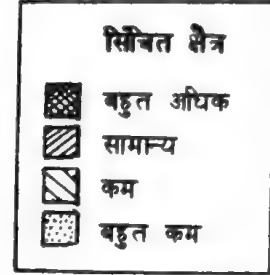 सिंचित क्षेत्र
बहुत अधिक
सामान्य
कम
बहुत कम